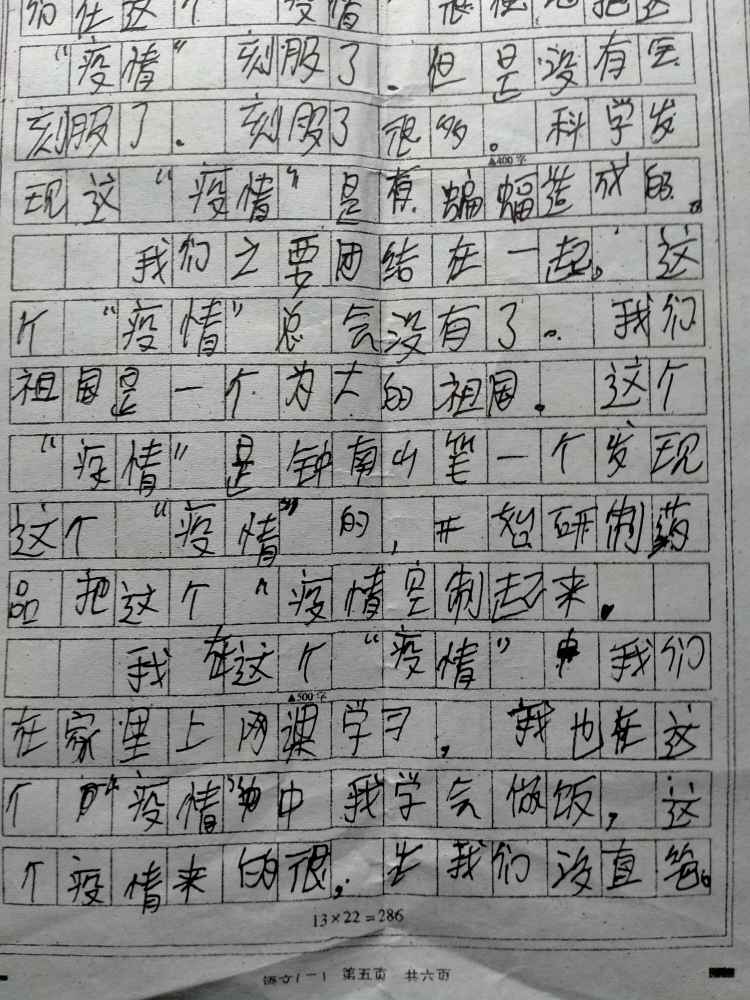 们在这个 疫情 很快把这
"疫情" 刻服了。但是没有医
刻服了。刻服了很多。科学发
▲400字
现这"疫情"是有蝙蝠造成的。
我们之要团结在一起。这
个"疫情"总会没有了。我们
祖国是一个为大的祖国。这个
"疫情"是钟南山笔一个发现
这个"疫情"的,开始研制药
品把这个"疫情空制起来。
我在这个"疫情"中我们
▲500字
在家里上网课学习,我也在这
个"疫情"中我学会做饭,这
个疫情来的很,我们没直笔。
13×22=286
语文(一) 第五页 共六页